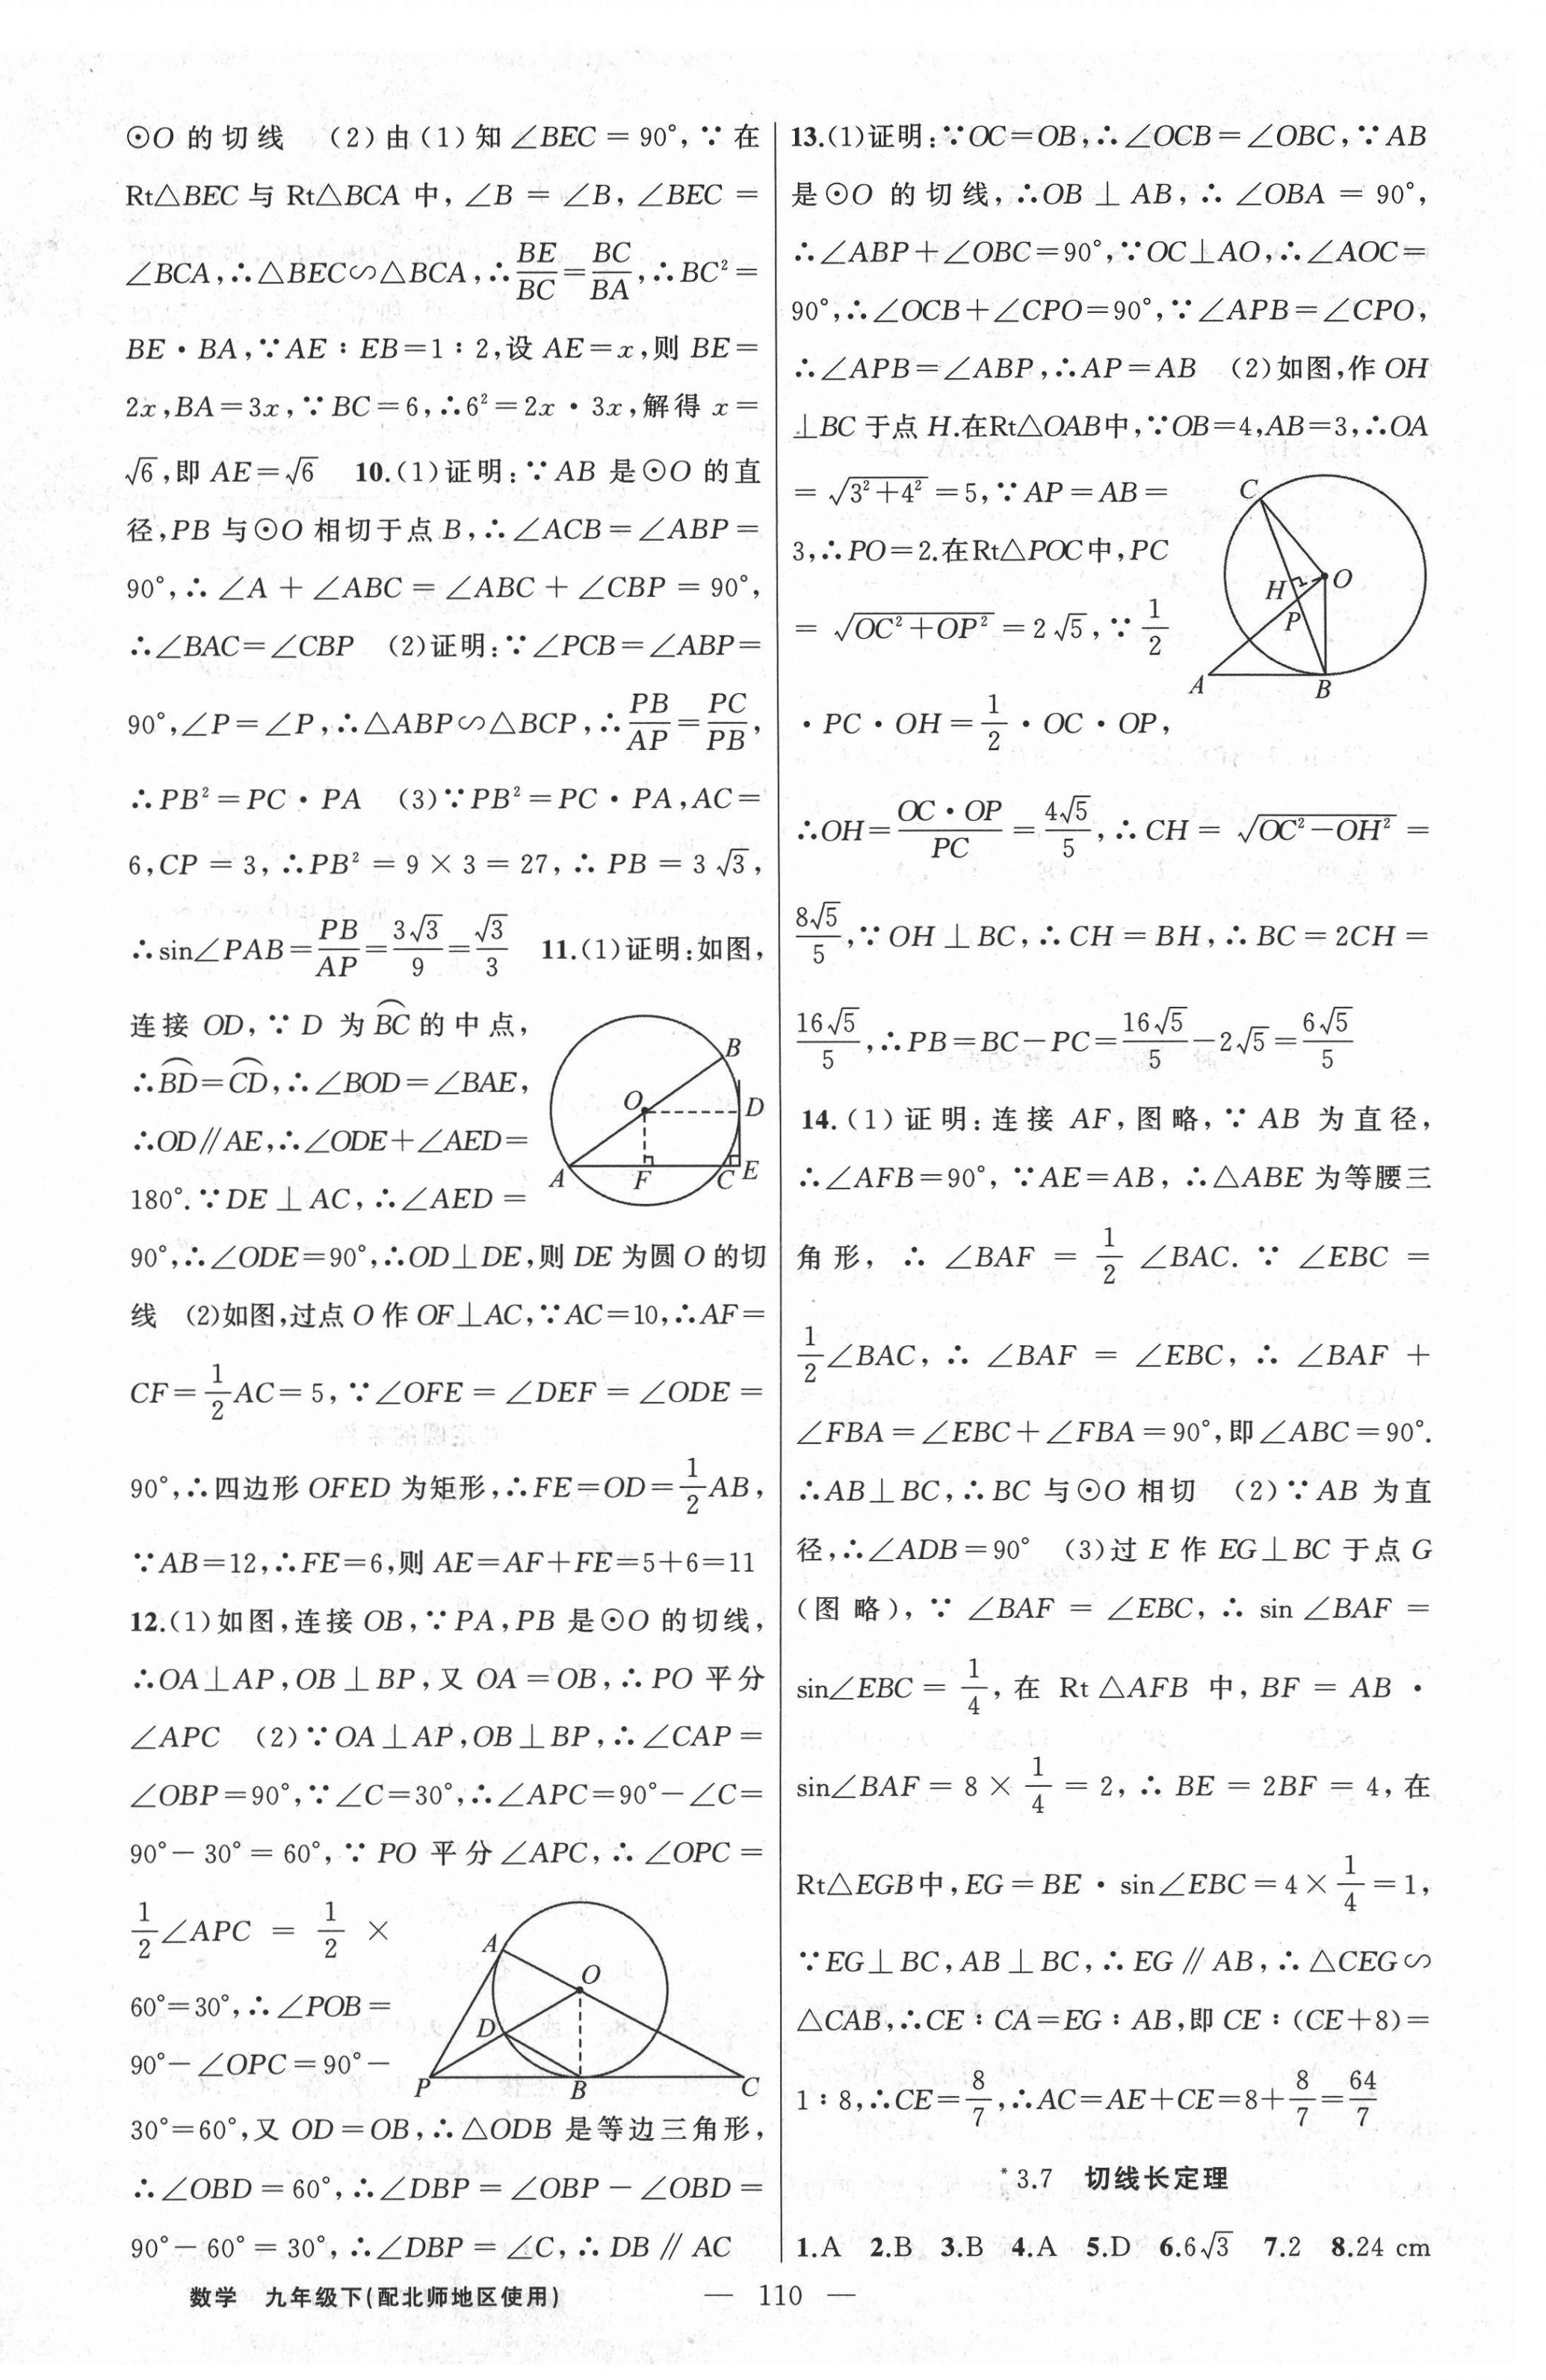 ⊙O 的切线 (2)由(1)知∠BEC=90°,∵在
Rt△BEC 与 Rt△BCA 中,∠B=∠B,∠BEC=
∠BCA,∴△BEC∽△BCA,∴BE/BC=BC/BA,∴BC²=
BE·BA,∵AE∶EB=1∶2,设 AE=x,则 BE=
2x,BA=3x,∵BC=6,∴6²=2x·3x,解得 x=
√6,即 AE=√6 10.(1)证明:∵AB 是⊙O 的直
径,PB 与⊙O 相切于点 B,∴∠ACB=∠ABP=
90°,∴∠A+∠ABC=∠ABC+∠CBP=90°,
∴∠BAC=∠CBP (2)证明:∵∠PCB=∠ABP=
90°,∠P=∠P,∴△ABP∽△BCP,∴PB/AP=PC/PB,
∴PB²=PC·PA (3)∵PB²=PC·PA,AC=
6,CP=3,∴PB²=9×3=27,∴PB=3√3,
∴sin∠PAB=PB/AP=3√3/9=√3/3 11.(1)证明:如图,
连接 OD,∵D 为B͡C的中点,
∴B͡D=C͡D,∴∠BOD=∠BAE,
∴OD∥AE,∴∠ODE+∠AED=
180°.∵DE⊥AC,∴∠AED=
B
O
D
A
F
C
E
90°,∴∠ODE=90°,∴OD⊥DE,则 DE 为圆 O 的切
线 (2)如图,过点 O 作 OF⊥AC,∵AC=10,∴AF=
CF=1/2AC=5,∵∠OFE=∠DEF=∠ODE=
90°,∴四边形 OFED 为矩形,∴FE=OD=1/2AB,
∵AB=12,∴FE=6,则 AE=AF+FE=5+6=11
12.(1)如图,连接 OB,∵PA,PB 是⊙O 的切线,
∴OA⊥AP,OB⊥BP,又 OA=OB,∴PO 平分
∠APC (2)∵OA⊥AP,OB⊥BP,∴∠CAP=
∠OBP=90°,∵∠C=30°,∴∠APC=90°-∠C=
90°-30°=60°,∵PO 平分∠APC,∴∠OPC=
1/2∠APC=1/2×
60°=30°,∴∠POB=
90°-∠OPC=90°-
A
O
D
P
B
C
30°=60°,又 OD=OB,∴△ODB 是等边三角形,
∴∠OBD=60°,∴∠DBP=∠OBP-∠OBD=
90°-60°=30°,∴∠DBP=∠C,∴DB∥AC
13.(1)证明:∵OC=OB,∴∠OCB=∠OBC,∵AB
是⊙O 的切线,∴OB⊥AB,∴∠OBA=90°,
∴∠ABP+∠OBC=90°,∵OC⊥AO,∴∠AOC=
90°,∴∠OCB+∠CPO=90°,∵∠APB=∠CPO,
∴∠APB=∠ABP,∴AP=AB (2)如图,作 OH
⊥BC 于点 H.在Rt△OAB中,∵OB=4,AB=3,∴OA
=√(3²+4²)=5,∵AP=AB=
3,∴PO=2.在Rt△POC中,PC
=√(OC²+OP²)=2√5,∵1/2
·PC·OH=1/2·OC·OP,
C
H
O
P
A
B
∴OH=OC·OP/PC=4√5/5,∴CH=√(OC²-OH²)=
8√5/5,∵OH⊥BC,∴CH=BH,∴BC=2CH=
16√5/5,∴PB=BC-PC=16√5/5-2√5=6√5/5
14.(1)证明:连接 AF,图略,∵AB 为直径,
∴∠AFB=90°,∵AE=AB,∴△ABE 为等腰三
角形,∴∠BAF=1/2∠BAC.∵∠EBC=
1/2∠BAC,∴∠BAF=∠EBC,∴∠BAF+
∠FBA=∠EBC+∠FBA=90°,即∠ABC=90°.
∴AB⊥BC,∴BC 与⊙O 相切 (2)∵AB 为直
径,∴∠ADB=90° (3)过 E 作 EG⊥BC 于点 G
(图略),∵∠BAF=∠EBC,∴sin∠BAF=
sin∠EBC=1/4,在 Rt△AFB 中,BF=AB·
sin∠BAF=8×1/4=2,∴BE=2BF=4,在
Rt△EGB中,EG=BE·sin∠EBC=4×1/4=1,
∵EG⊥BC,AB⊥BC,∴EG∥AB,∴△CEG∽
△CAB,∴CE∶CA=EG∶AB,即 CE∶(CE+8)=
1∶8,∴CE=8/7,∴AC=AE+CE=8+8/7=64/7
*3.7 切线长定理
1.A 2.B 3.B 4.A 5.D 6.6√3 7.2 8.24 cm
数学 九年级下(配北师地区使用) — 110 —